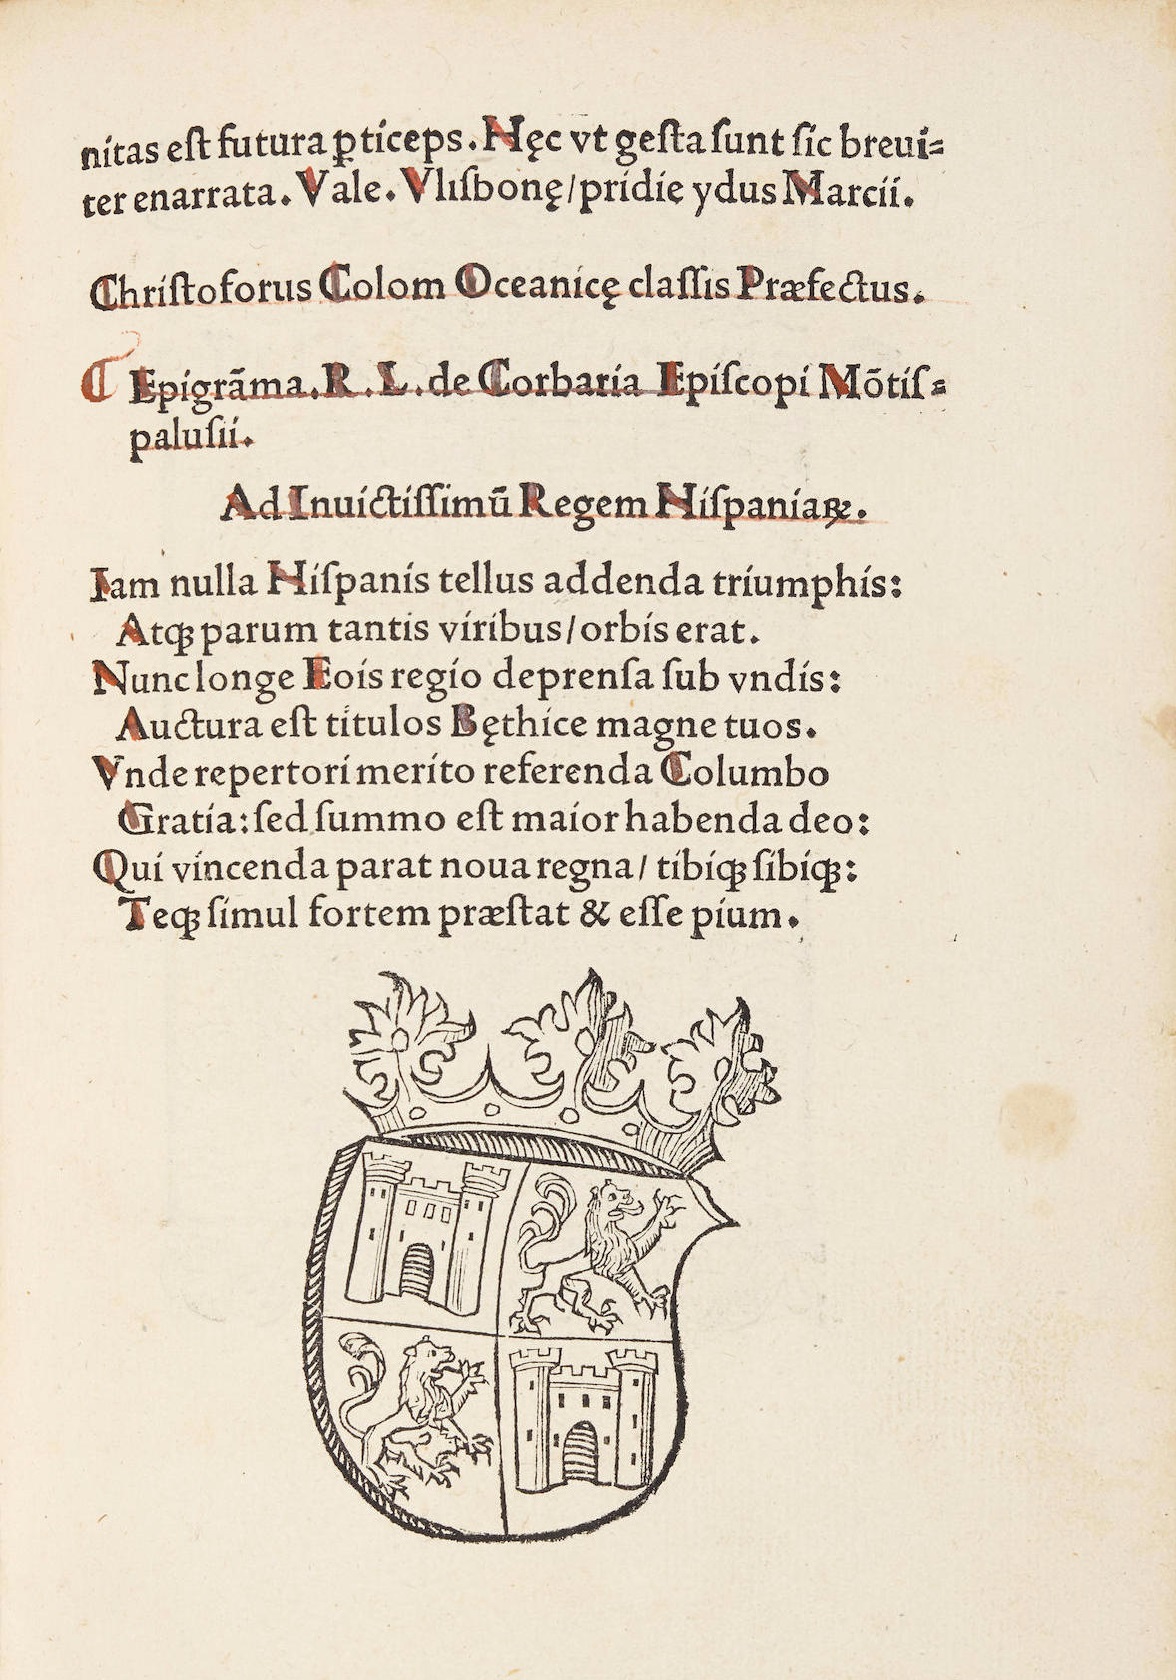 nitas eſt futura ꝑticeps. Nęc vt geſta ſunt ſic breui⸗
ter enarrata. Vale. Vliſbonę/ pridie ydus Marcii.
Chriſtoforus Colom Oceanicę claſſis Præfectus.
⁋ Epigrãma. R. L. de Corbaria Epiſcopi Mõtiſ⸗
paluſii.
Ad Inuictiſſimũ Regem Hiſpaniaꝝ.
Iam nulla Hiſpanis tellus addenda triumphis:
Atqꝫ parum tantis viribus/ orbis erat.
Nunc longe Eois regio deprenſa ſub vndis:
Auctura eſt titulos Bęthice magne tuos.
Vnde repertori merito referenda Columbo
Gratia: ſed ſummo eſt maior habenda deo:
Qui vincenda parat noua regna/ tibiqꝫ ſibiqꝫ:
Teqꝫ ſimul fortem præſtat & eſſe pium.